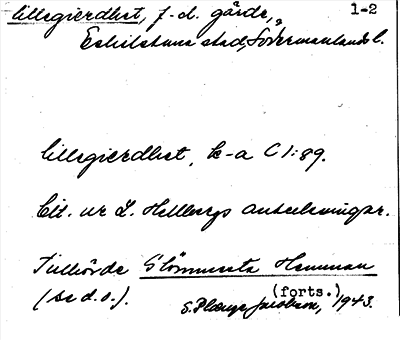 Lillegierdhet, f.d. gärde, 1-2
Eskilstuna stad, Södermanlands l.
Lillegierdhet, k-a C 1:89.
Cit. ur L. Hellbergs anteckningar.
Tillhörde Slömmesta Hemman
(se d.o.). (forts.)
S. Jacobson, 1943.